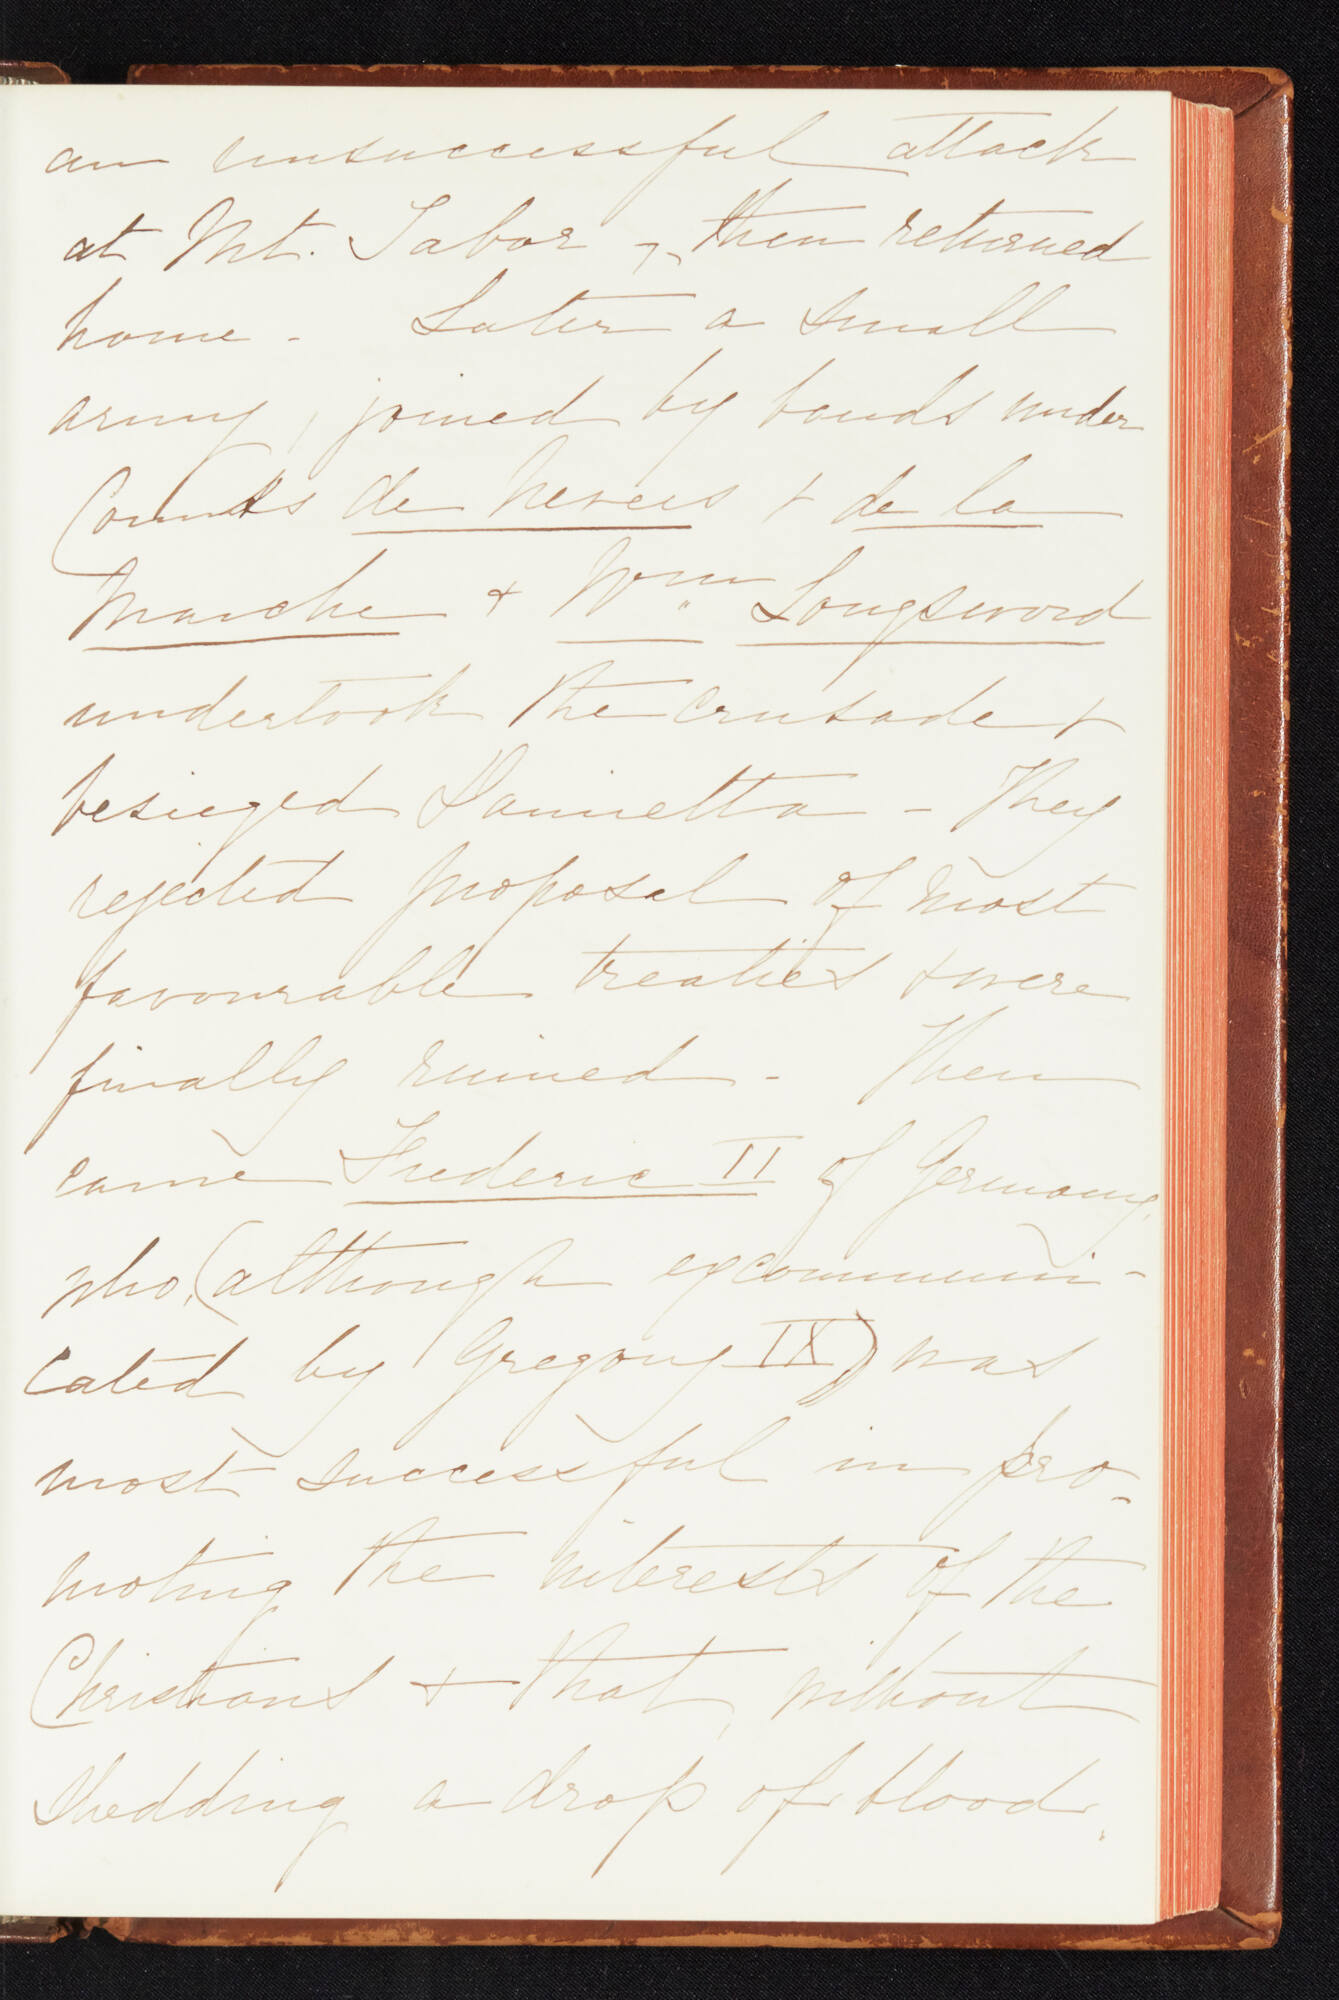 an unsuccessful attack
at Mt. Tabor, then returned
home - Later a small
army, joined by bands under
Counts de Nevers & de la
Marche & Wm Longsword
undertook the crusade &
besieged Damietta - They
rejected proposal of most
favourable treaties & were
finally ruined - Then
came Frederic II of Germany,
who, (although excommuni-
cated by Gregory IX) was
most successful in pro-
moting the interests of the
Christians & that, without
shedding a drop of blood.